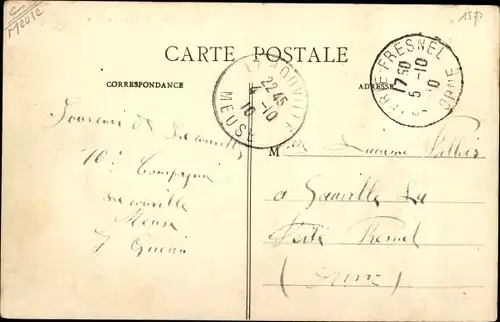 Meuse
157
CARTE POSTALE
CORRESPONDANCE
ADRESSE
LEROUVILLE
22 45
4 -10
10
MEUSE
FRESNEL
17 50
5 -10
10
Souvenir de Lerouville
10e Compagnie
Lerouville
Meuse
Guerin
Melle
a Gauville La
Ferté Fresnel
(Orne)